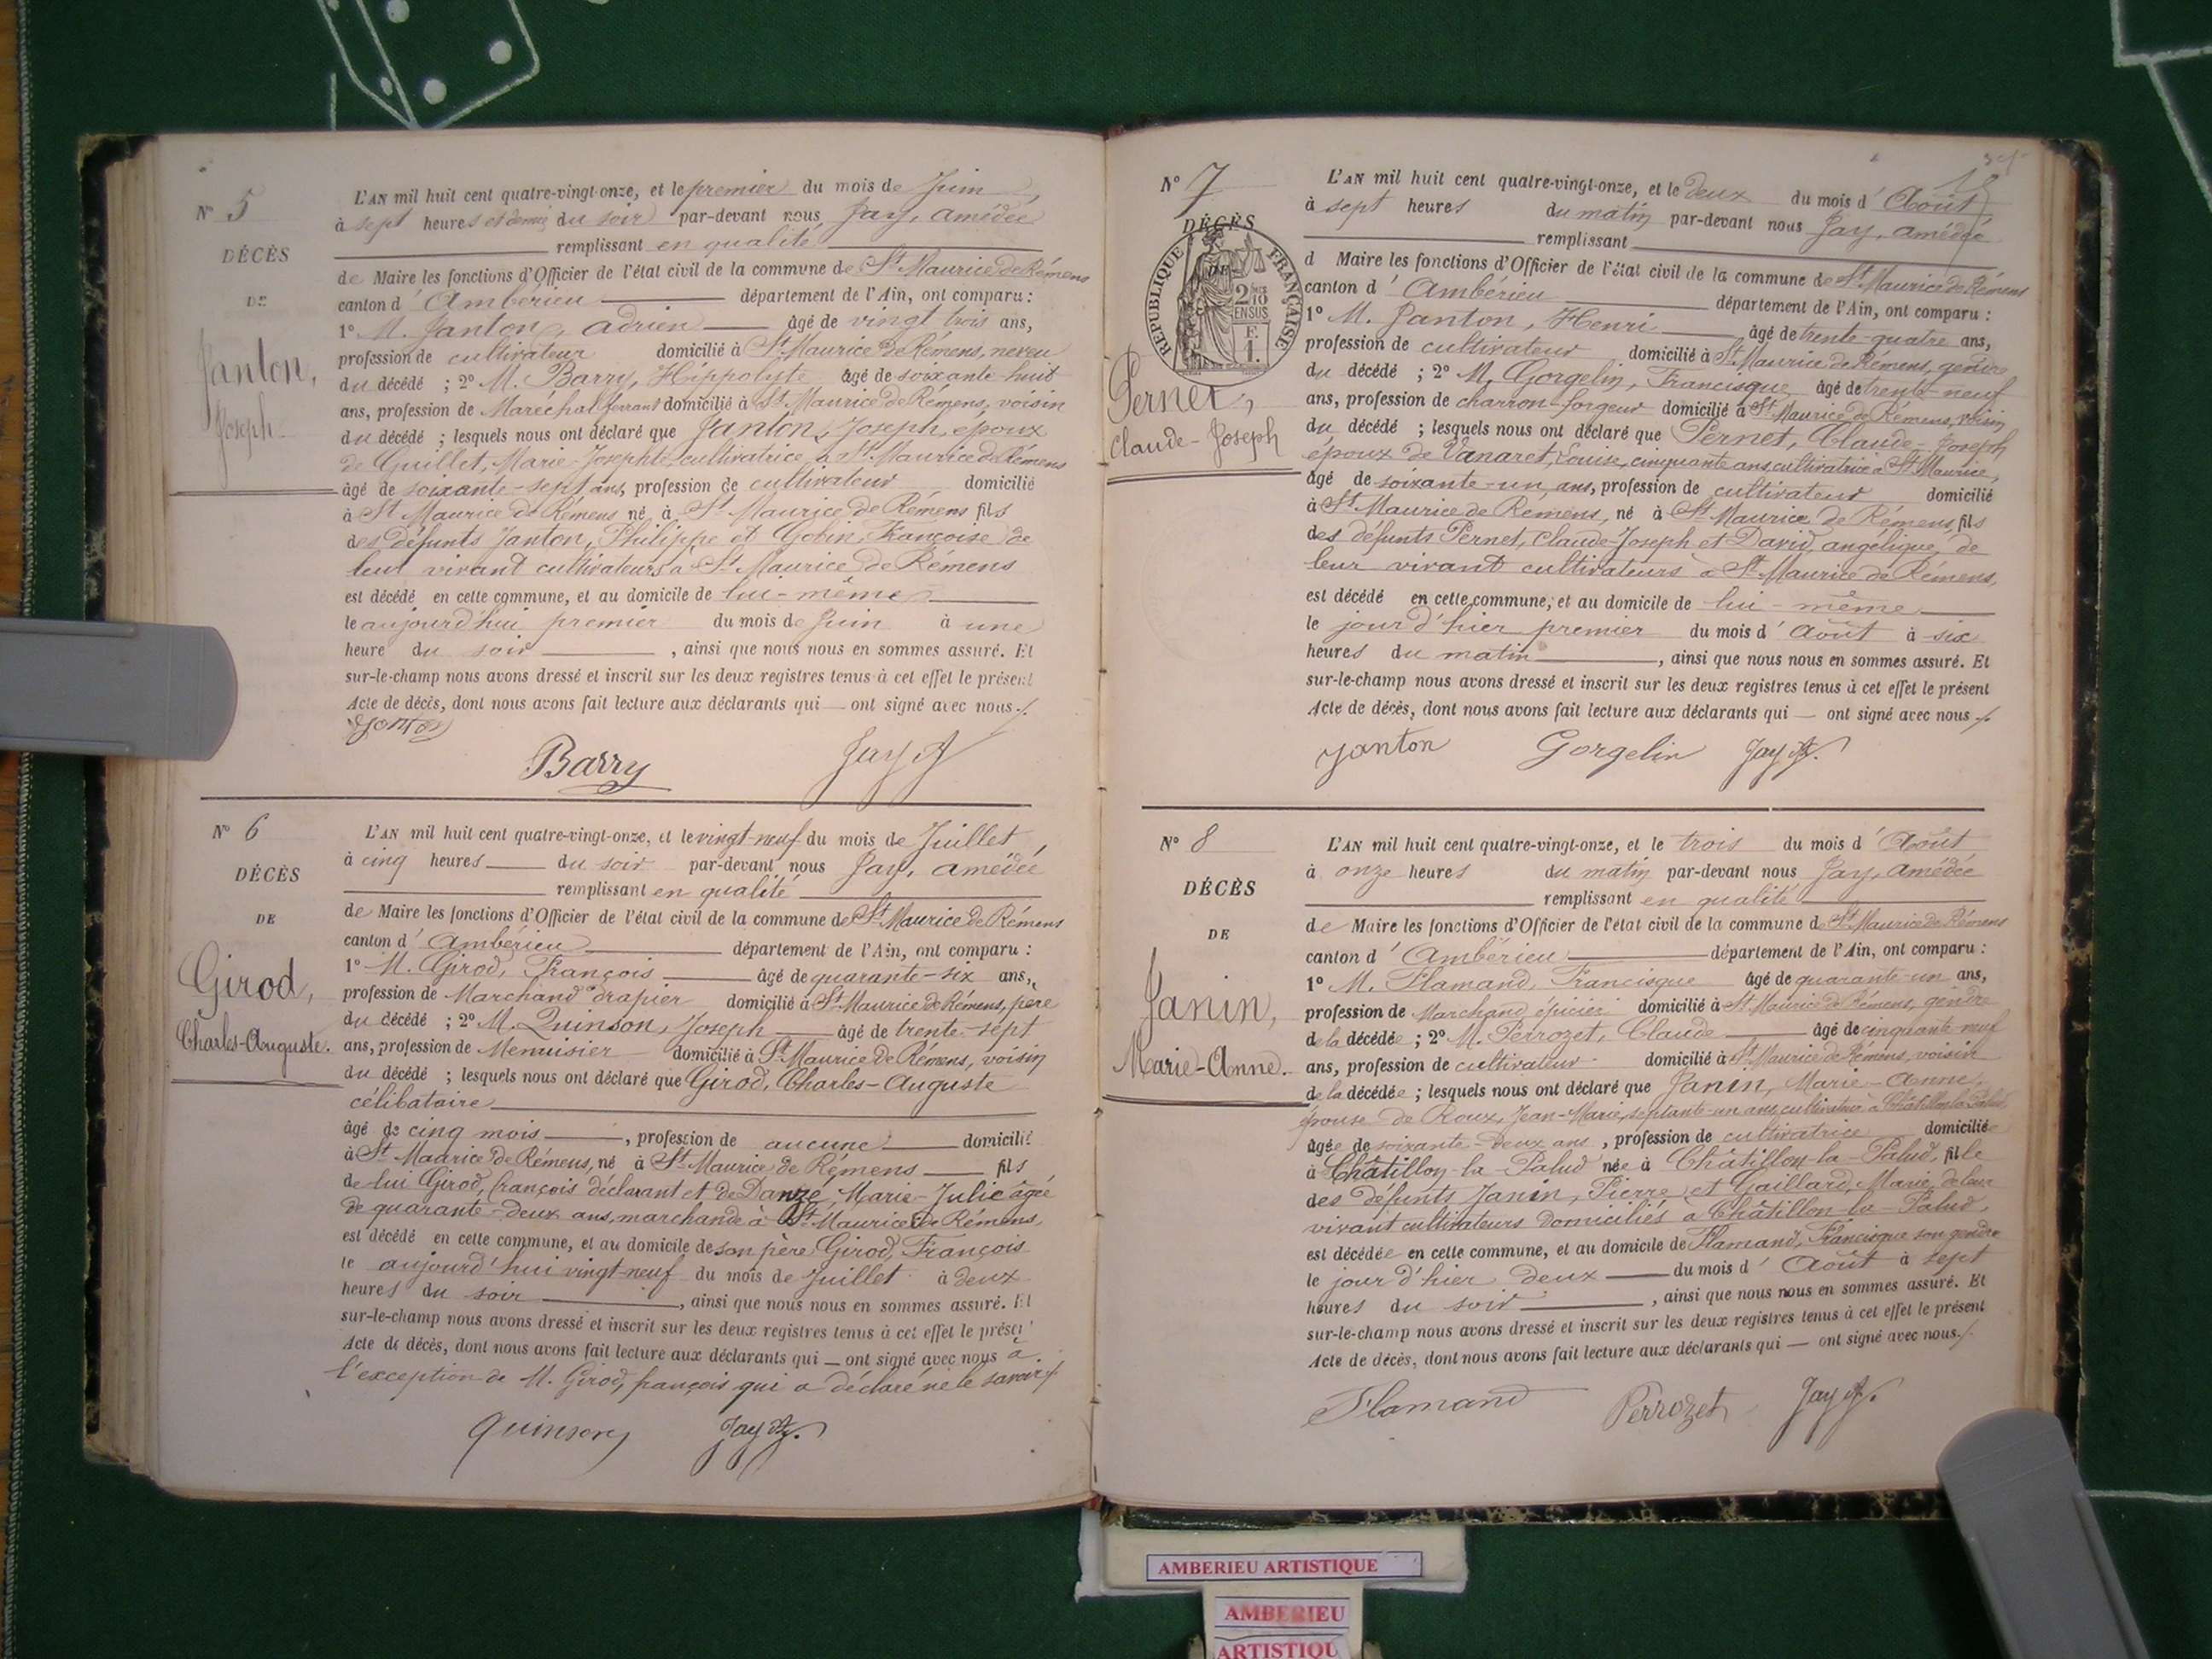 N° 5
DÉCÈS
DE
Janton,
Joseph.
L'AN mil huit cent quatre-vingt-onze, et le premier du mois de Juin,
à sept heures et demie du soir par-devant nous Jay, Amédée
remplissant en qualité
de Maire les fonctions d'Officier de l'état civil de la commune de St Maurice de Rémens
canton d' Ambérieu département de l'Ain, ont comparu :
1° M. Janton, Adrien âgé de vingt trois ans,
profession de cultivateur domicilié à St Maurice de Rémens, neveu
du décédé ; 2° M. Barry, Hippolyte âgé de soixante huit
ans, profession de Maréchal ferrant domicilié à St Maurice de Rémens, voisin
du décédé ; lesquels nous ont déclaré que Janton, Joseph, époux
de Guillet, Marie Josephte, cultivatrice à St Maurice de Rémens
âgé de soixante-sept ans, profession de cultivateur domicilié
à St Maurice de Rémens né à St Maurice de Rémens fils
des défunts Janton, Philippe et Gobin, Françoise de
leur vivant cultivateurs à St Maurice de Rémens
est décédé en cette commune, et au domicile de lui-même
le aujourd'hui premier du mois de Juin à une
heure du soir , ainsi que nous nous en sommes assuré. Et
sur-le-champ nous avons dressé et inscrit sur les deux registres tenus à cet effet le présent
Acte de décès, dont nous avons fait lecture aux déclarants qui — ont signé avec nous./.
Janton
Barry Jay A
N° 6
DÉCÈS
DE
Girod,
Charles-Auguste.
L'AN mil huit cent quatre-vingt-onze, et le vingt-neuf du mois de Juillet,
à cinq heures du soir par-devant nous Jay, Amédée
remplissant en qualité
de Maire les fonctions d'Officier de l'état civil de la commune de St Maurice de Rémens
canton d' Ambérieu département de l'Ain, ont comparu :
1° M. Girod, François âgé de quarante-six ans,
profession de Marchand drapier domicilié à St Maurice de Rémens, père
du décédé ; 2° M. Quinson, Joseph âgé de trente-sept
ans, profession de Menuisier domicilié à St Maurice de Rémens, voisin
du décédé ; lesquels nous ont déclaré que Girod, Charles-Auguste
célibataire
âgé de cinq mois , profession de aucune domicilié
à St Maurice de Rémens, né à St Maurice de Rémens fils
de lui Girod, françois déclarant et de Danze, Marie-Julie âgée
de quarante-deux ans, marchande à St Maurice de Rémens,
est décédé en cette commune, et au domicile de son père Girod, François
le aujourd'hui vingt-neuf du mois de Juillet à deux
heures du soir , ainsi que nous nous en sommes assuré. Et
sur-le-champ nous avons dressé et inscrit sur les deux registres tenus à cet effet le présent
Acte de décès, dont nous avons fait lecture aux déclarants qui — ont signé avec nous à
l'exception de M. Girod, françois qui a déclaré ne le savoir./.
Quinson Jay A.
N° 7
DÉCÈS
DE
RÉPUBLIQUE FRANÇAISE
2/10
EN SUS
F.
1.
Pernet,
Claude-Joseph
L'AN mil huit cent quatre-vingt-onze, et le deux du mois d' Août,
à sept heures du matin par-devant nous Jay, Amédée
remplissant
d Maire les fonctions d'Officier de l'état civil de la commune de St Maurice de Rémens
canton d' Ambérieu département de l'Ain, ont comparu :
1° M. Janton, Henri âgé de trente-quatre ans,
profession de cultivateur domicilié à St Maurice de Rémens, gendre
du décédé ; 2° M. Gorgelin, Francisque âgé de trente-neuf
ans, profession de charron-forgeur domicilié à St Maurice de Rémens, voisin
du décédé ; lesquels nous ont déclaré que Pernet, Claude-Joseph
époux de Vanaret, Louise, cinquante ans, cultivatrice à St Maurice,
âgé de soixante-un ans, profession de cultivateur domicilié
à St Maurice de Rémens, né à St Maurice de Rémens, fils
des défunts Pernet, Claude-Joseph et David, angélique, de
leur vivant cultivateurs à St Maurice de Rémens,
est décédé en cette commune, et au domicile de lui-même
le jour d'hier premier du mois d' Août à six
heures du matin , ainsi que nous nous en sommes assuré. Et
sur-le-champ nous avons dressé et inscrit sur les deux registres tenus à cet effet le présent
Acte de décès, dont nous avons fait lecture aux déclarants qui — ont signé avec nous./.
Janton Gorgelin Jay A.
N° 8
DÉCÈS
DE
Janin,
Marie-Anne.
L'AN mil huit cent quatre-vingt-onze, et le trois du mois d' Août
à onze heures du matin par-devant nous Jay, Amédée
remplissant en qualité
de Maire les fonctions d'Officier de l'état civil de la commune de St Maurice de Rémens
canton d' Ambérieu département de l'Ain, ont comparu :
1° M. Flamand, Francisque âgé de quarante-un ans,
profession de Marchand épicier domicilié à St Maurice de Rémens, gendre
de la décédée ; 2° M. Perrozet, Claude âgé de cinquante neuf
ans, profession de cultivateur domicilié à St Maurice de Rémens, voisin
de la décédée ; lesquels nous ont déclaré que Janin, Marie-Anne,
épouse de Roux, Jean-Marie, septante-un ans, cultivateur à Châtillon la Palud,
âgée de soixante-deux ans , profession de cultivatrice domiciliée
à Châtillon-la-Palud née à Châtillon-la-Palud, fille
des défunts Janin, Pierre et Gaillard, Marie, de leur
vivant cultivateurs domiciliés à Châtillon-la-Palud,
est décédée en cette commune, et au domicile de Flamand, Francisque son gendre
le jour d'hier deux du mois d' Août à sept
heures du soir , ainsi que nous nous en sommes assuré. Et
sur-le-champ nous avons dressé et inscrit sur les deux registres tenus à cet effet le présent
Acte de décès, dont nous avons fait lecture aux déclarants qui — ont signé avec nous./.
Flamand Perrozet Jay A.
AMBERIEU ARTISTIQUE
AMBERIEU
ARTISTIQU